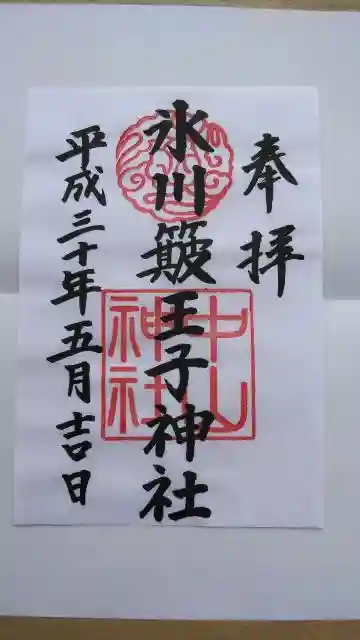 奉拝
氷川簸王子神社
中山神社
平成三十年五月吉日